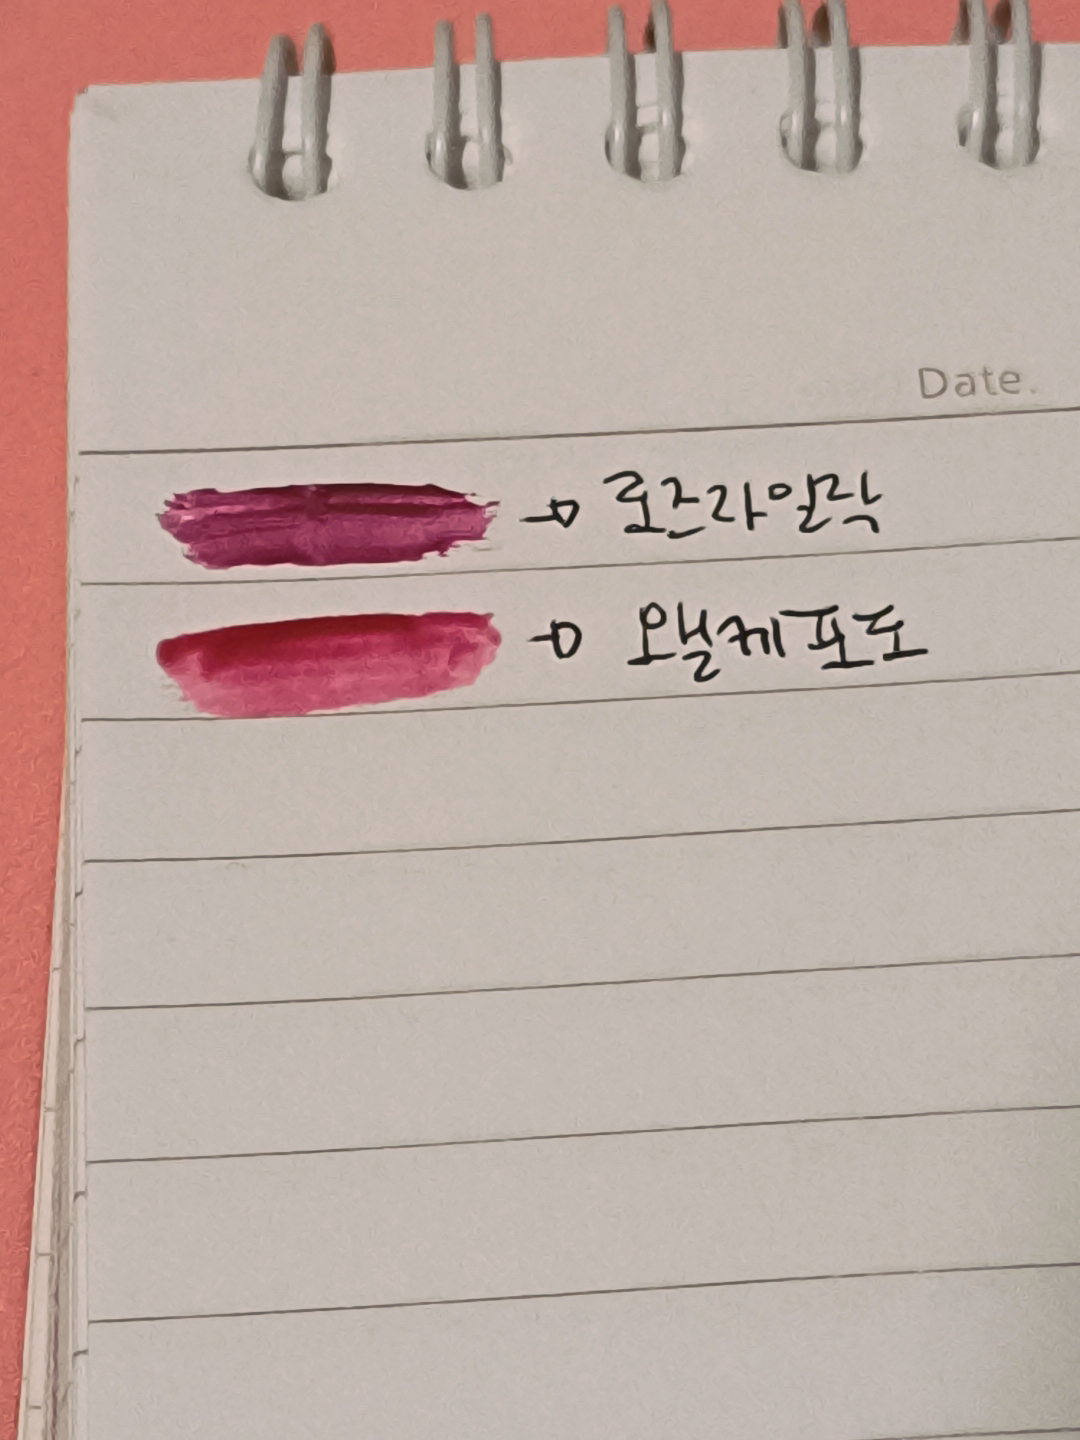 Date.
로즈라일락
오낼케포도